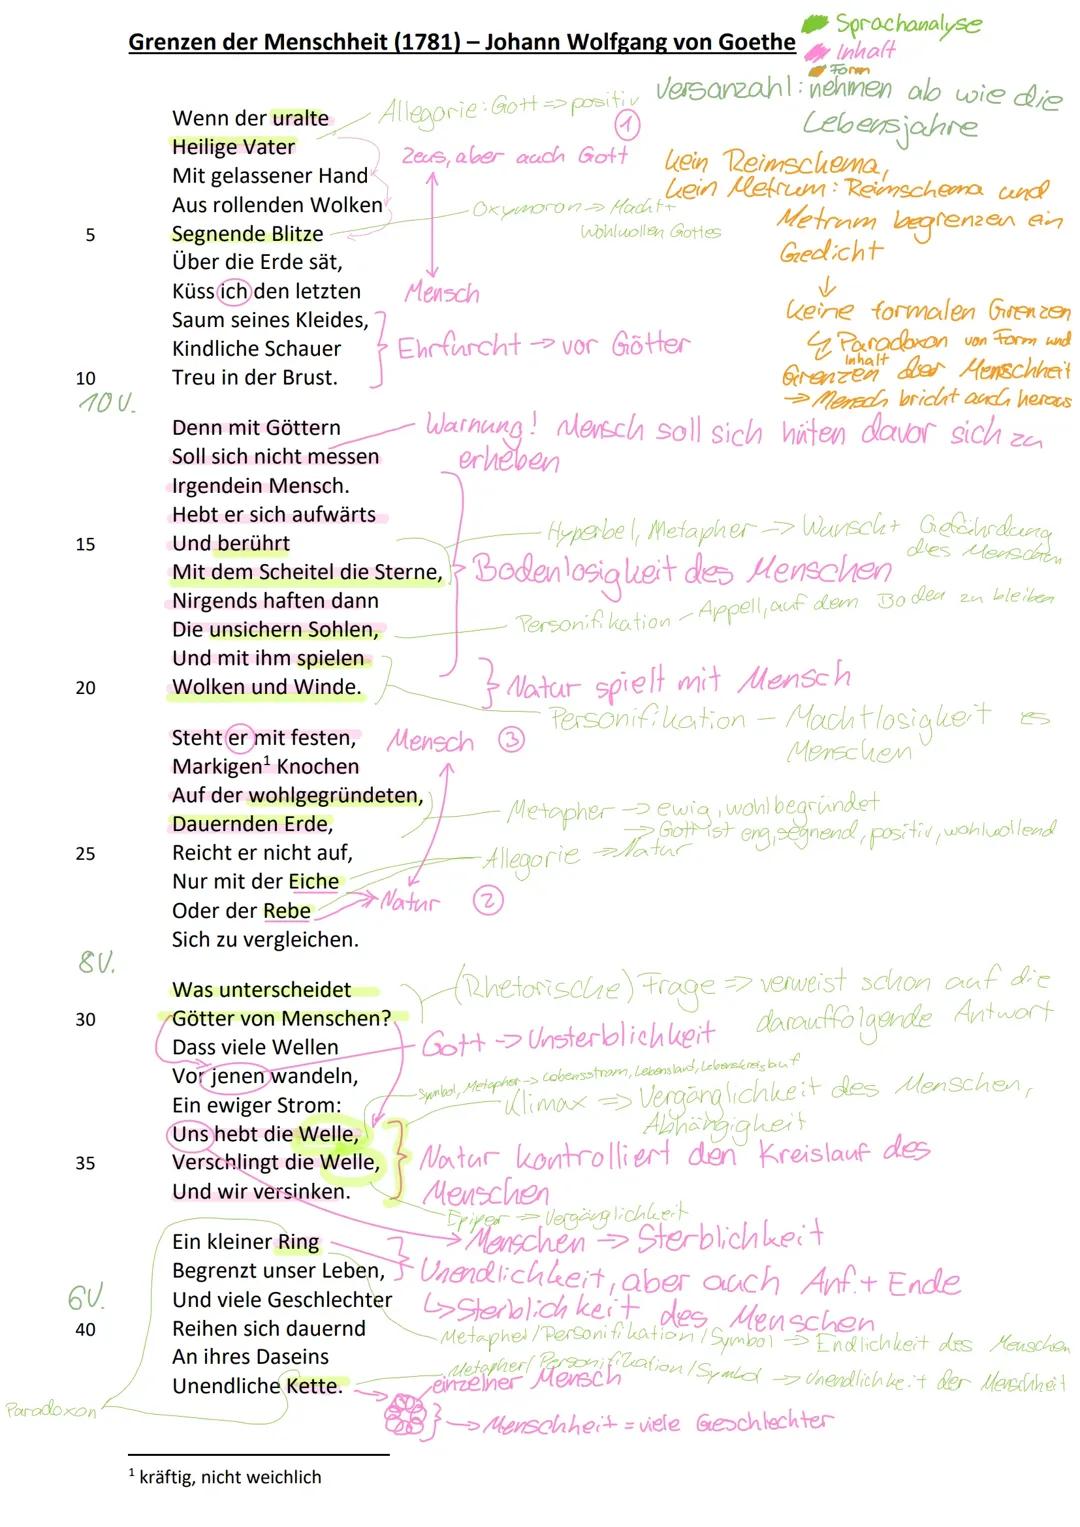 Grenzen der Menschheit (1781) – Johann Wolfgang von Goethe
Sprachanalyse
Inhalt
Form
Versanzahl: nehmen ab wie die
Lebensjahre
Wenn der uralte
Allegorie: Gott => positiv
1
Heilige Vater
Zeus, aber auch Gott
kein Reimschema,
Mit gelassener Hand
kein Metrum: Reimschema und
Aus rollenden Wolken
Oxymoron -> Macht +
Wohlwollen Gottes
Metrum begrenzen ein
Gedicht
5
Segnende Blitze
Über die Erde sät,
Küss ich den letzten
Mensch
keine formalen Grenzen
Saum seines Kleides,
Paradoxon von Form und
Inhalt
Kindliche Schauer
Ehrfurcht -> vor Götter
Grenzen der Menschheit
10
Treu in der Brust.
-> Mensch bricht auch heraus
10 V.
Denn mit Göttern
Warnung! Mensch soll sich hüten davor sich zu
erheben
Soll sich nicht messen
Irgendein Mensch.
Hebt er sich aufwärts
15
Und berührt
Hyperbel, Metapher -> Wunsch + Gefährdung
des Menschen
Mit dem Scheitel die Sterne,
Bodenlosigkeit des Menschen
Nirgends haften dann
Die unsichern Sohlen,
Personifikation - Appell, auf dem Boden zu bleiben
Und mit ihm spielen
20
Wolken und Winde.
Natur spielt mit Mensch
Personifikation - Machtlosigkeit
Menschen
Steht er mit festen,
Mensch 3
Markigen¹ Knochen
Auf der wohlgegründeten,
Metapher -> ewig, wohlbegründet
Dauernden Erde,
-> Gott ist eng, segnend, positiv, wohlwollend
25
Reicht er nicht auf,
Allegorie -> Natur
Nur mit der Eiche
Natur 2
Oder der Rebe
Sich zu vergleichen.
8 V.
Was unterscheidet
(Rhetorische) Frage => verweist schon auf die
darauffolgende Antwort
30
Götter von Menschen?
Gott -> Unsterblichkeit
Dass viele Wellen
Vor jenen wandeln,
Symbol, Metapher -> Lebensstrom,
Ein ewiger Strom:
Klimax => Vergänglichkeit des Menschen,
Abhängigkeit
Uns hebt die Welle,
35
Verschlingt die Welle,
Natur kontrolliert den Kreislauf des
Menschen
Und wir versinken.
Epipher -> Vergänglichkeit
-> Menschen -> Sterblichkeit
Ein kleiner Ring
Begrenzt unser Leben,
Unendlichkeit, aber auch Anf. + Ende
6 V.
Und viele Geschlechter
Sterblichkeit des Menschen
40
Reihen sich dauernd
Metapher/Personifikation/Symbol -> Endlichkeit des Menschen
An ihres Daseins
Metapher/Personifikation/Symbol -> Unendlichkeit der Menschheit
Unendliche Kette.
einzelner Mensch
Paradoxon
-> Menschheit = viele Geschlechter
¹ kräftig, nicht weichlich